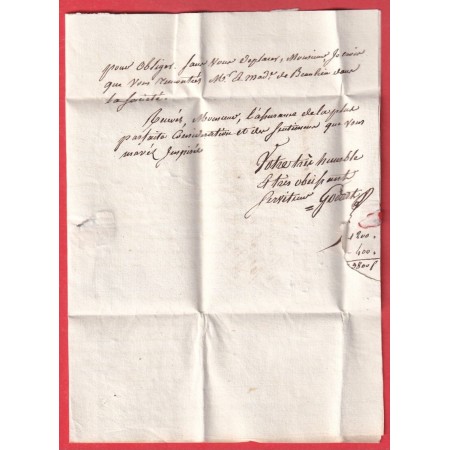 pour obliger. sans vous deplacer, Monsieur Je crois
que vous remontrés Mr. & Made. de Beaulieu dans
la Société.
Recevés, Monsieur, l'assurance de la plus
parfaite Consideration et des sentimens que vous
m'avés Inspirés
Votre très humble
& très obéissant
serviteur
1200.
400.